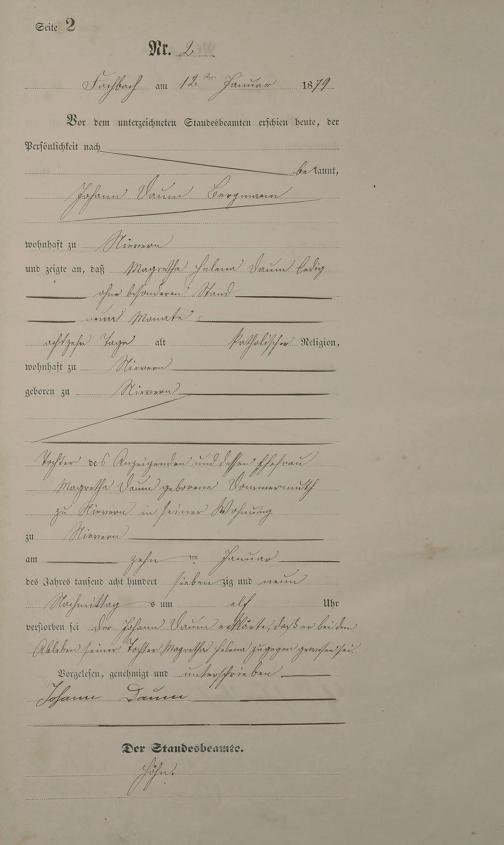 Seite 2
Nr. 2
Fachbach am 12ten Januar 1879
Vor dem unterzeichneten Standesbeamten erschien heute, der
Persönlichkeit nach
bekannt,
Johann Daum Bergmann
wohnhaft zu Nievern
und zeigte an, daß Magretha Helena Daum ledig
ohne besonderen Stand
neun Monate
achtzehn Tage alt katholischer Religion,
wohnhaft zu Nievern
geboren zu Nievern
Tochter des Anzeigenden und dessen Ehefrau
Magretha Daum geborene Dommermuth
zu Nievern in seiner Wohnung
zu Nievern
am zehn ten Januar
des Jahres tausend acht hundert siebenzig und neun
Nachmittags um elf Uhr
verstorben sei der Johann Daum erklärte, dass er bei dem
Ableben seiner Tochter Magretha Helena zugegen gewesen sei.
Vorgelesen, genehmigt und unterschrieben
Johann Daum
Der Standesbeamte.
Höhn.